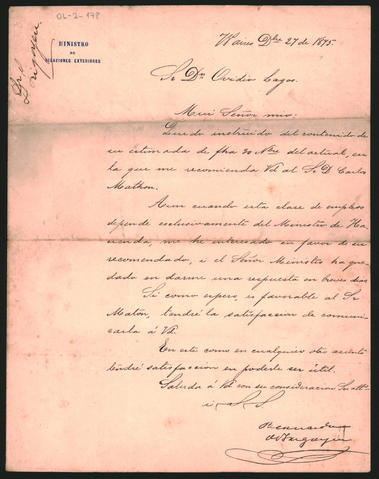 OL-2-178
Dr. Irigoyen
MINISTRO
DE
RELACIONES EXTERIORES
Bs Aires Dbre 27 de 1875.
Sr Dn Ovidio Lagos.
Mui Señor mio:
Quedo instruido del contenido de
su estimada de fha 20 Nbre del actual, en
la que me recomienda Vd al Sr D. Carlos
Mathon.
Aun cuando esta clase de empleos
depende esclusivamente del Ministro de Ha-
cienda, me he interesado en favor de su
recomendado, i el Señor Ministro ha que-
dado en darme una respuesta en breves dias
Si como espero, es favorable al Sr
Matón, tendré la satisfaccion de comuni-
carla á Vd.
En este como en cualquier otro asunto
tendré satisfaccion en poderle ser útil.
Saluda á Vd con su consideracion
i S. S.
Bernardo
de Irigoyen